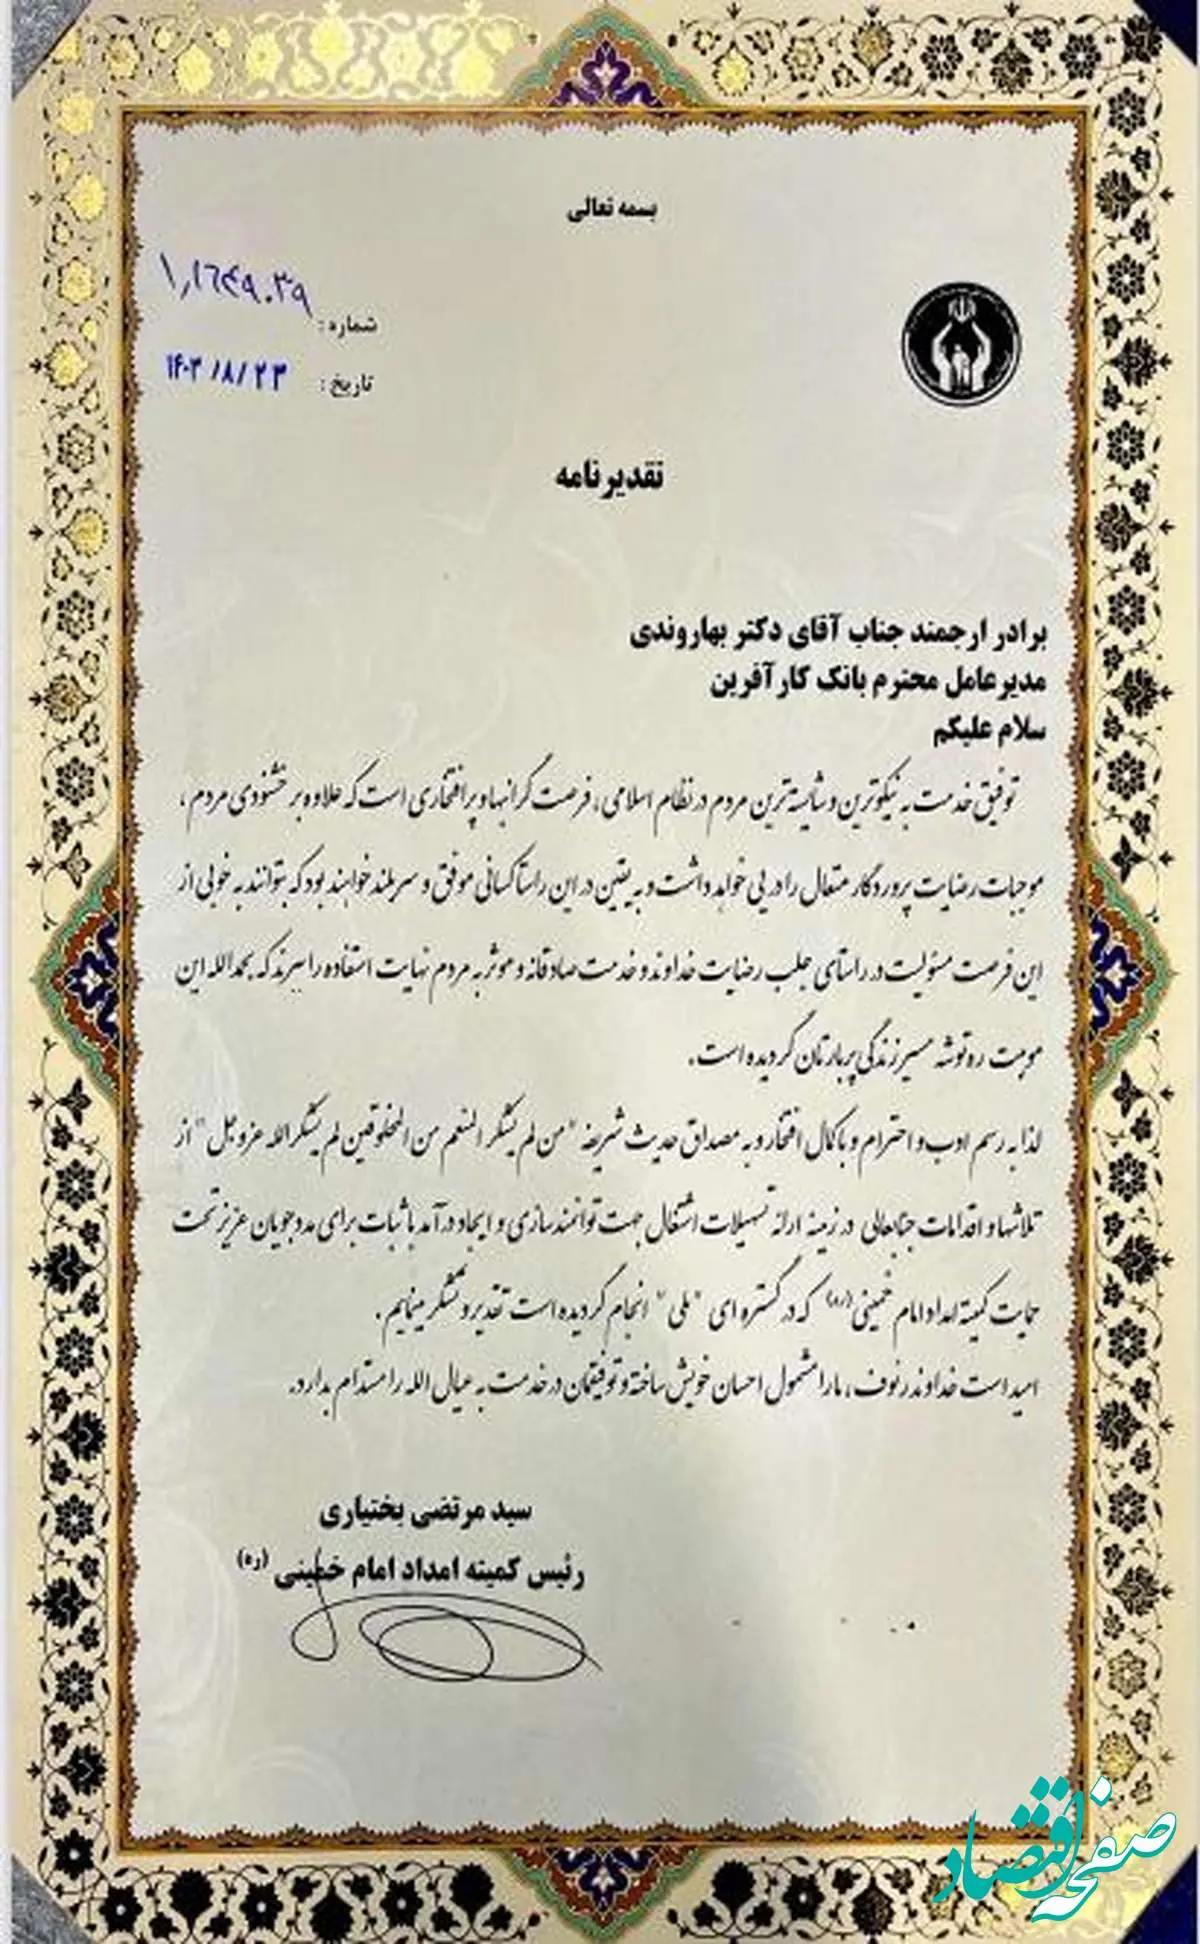 بسمه تعالی
شماره :
تاریخ : ۱۴۰۳/۸/۲۳
تقدیرنامه
برادر ارجمند جناب آقای دکتر بهاروندی
مدیرعامل محترم بانک کارآفرین
سلام علیکم
توفیق خدمت به نیکوترین و شایسته‌ترین مردم در نظام اسلامی، فرصت گرانبها و پرافتخاری است که علاوه بر خشنودی مردم ،
موجبات رضایت پروردگار متعال را در پی خواهد داشت و به یقین در این راستا کسانی موفق و سربلند خواهند بود که بتوانند به خوبی از
این فرصت مسئولیت در راستای جلب رضایت خداوند و خدمت صادقانه و موثر به مردم نهایت استفاده را ببرند که بحمدالله این
موهبت ره توشه مسیر زندگی پربارتان گردیده است.
لذا به رسم ادب و احترام و با کمال افتخار و به مصداق حدیث شریفه "من لم یشکر المنعم من المخلوقین لم یشکر الله عزوجل" از
تلاشها و اقدامات جنابعالی در زمینه ارائه تسهیلات اشتغال جهت توانمندسازی و ایجاد درآمد با ثبات برای مددجویان عزیز تحت
حمایت کمیته امداد امام خمینی (ره) که در گستره ای "ملی" انجام گردیده است تقدیر و تشکر مینمایم.
امید است خداوند رئوف، ما را مشمول احسان خویش ساخته و توفیقمان در خدمت به عیال الله را مستدام بدارد.
سید مرتضی بختیاری
رئیس کمیته امداد امام خمینی (ره)
صفحه اقتصاد